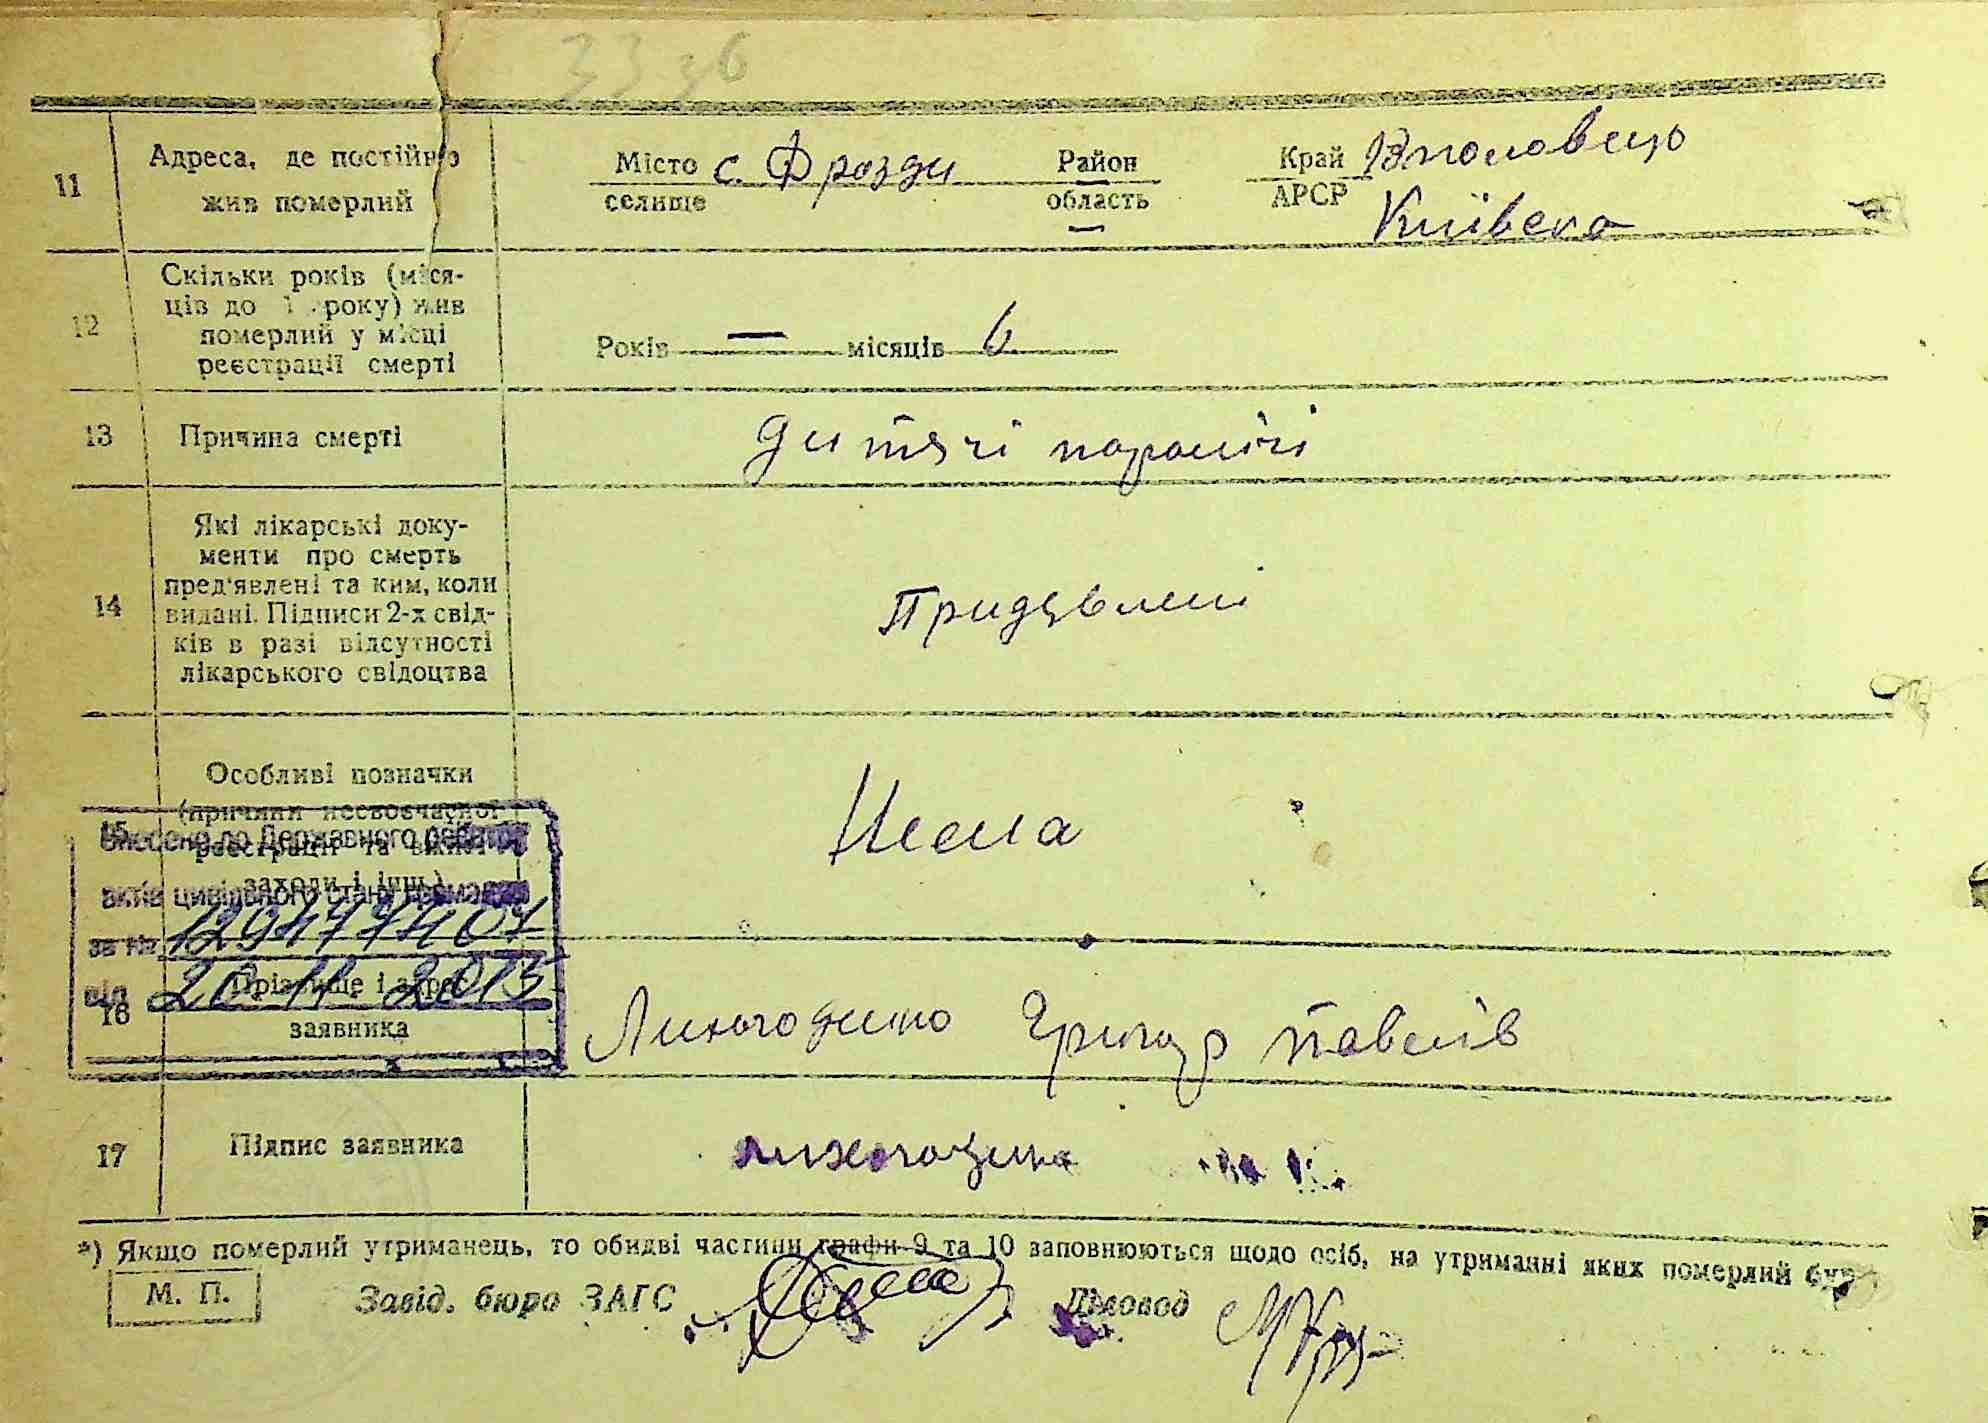 33 зб
11 Адреса, де постійно жив померлий
Місто селище с. Фрозди Район — область — Край АРСР
Київська
12 Скільки років (місяців до 1 року) жив померлий у місці реєстрації смерті
Років — місяців 6
13 Причина смерті
дитячі паралічі
14 Які лікарські доку-
менти про смерть
пред'явлені та ким, коли
видані. Підписи 2-х свід-
ків в разі відсутності
лікарського свідоцтва
Придявлені
15 Особливі позначки
(причини несвоєчасної
реєстрації та вжиті
заходи і інш.)
Нема
Внесено до Державного реєстру
актів цивільного стану громадян
за №
від 20 11 2015
16 Прізвище і адрес
заявника
Лихогодько Григор Павелів
17 Підпис заявника
лихогодько
*) Якщо померлий утриманець, то обидві частини графи 9 та 10 заповнюються щодо осіб, на утриманні яких померлий був
М. П.
Завід. бюро ЗАГС
Діловод